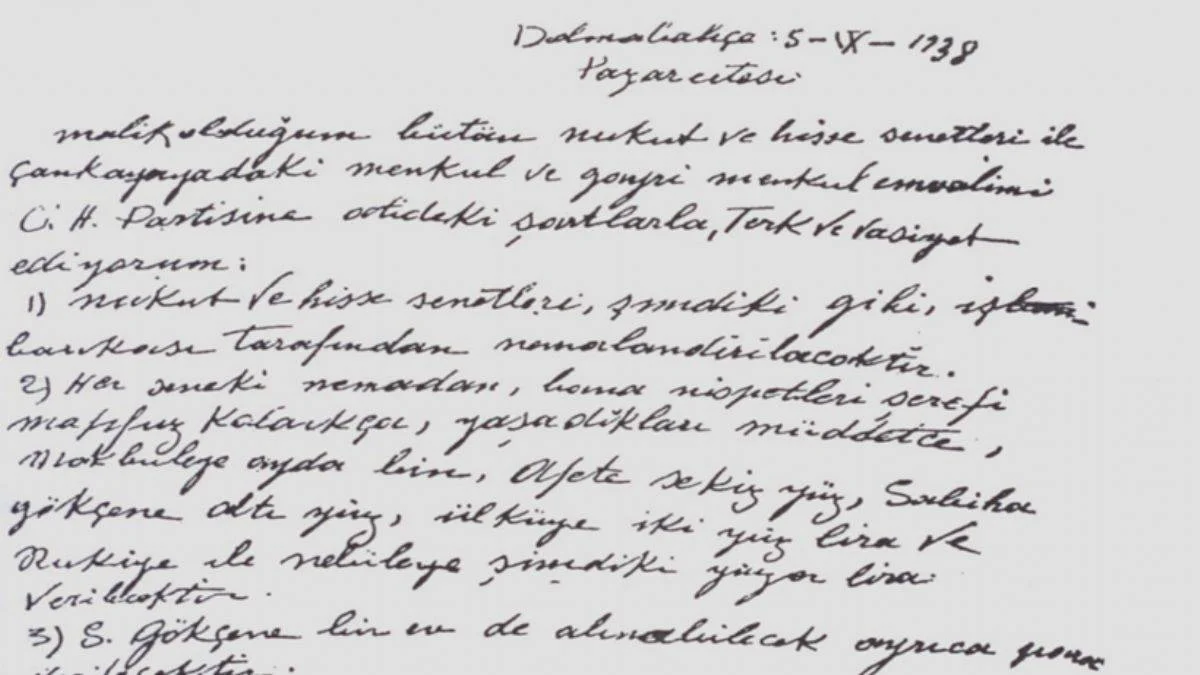 Dolmabahçe: 5-IX-1938
Pazarertesi
malik olduğum bütün nukut ve hisse senetleri ile
Çankayayadaki menkul ve gayri menkul emvalimi
C. H. Partisine atideki şartlarla, Terk ve vasiyet
ediyorum:
1) nukut ve hisse senetleri, şimdiki gibi, iş
bankası tarafından nemalandirilacaktır.
2) Her seneki nemadan, bana nispetleri şerefi
mahfuz kaldıkça, yaşadikları müddetce,
Makbuleye ayda bin, Afete sekiz yüz, Sabiha
gökçene altı yüz, ülküye iki yüz lira ve
Rukiye ile nebileye şimdiki yüzer lira
verilecektir.
3) S. Gökçene bir ev de alınabilecek ayrıca para